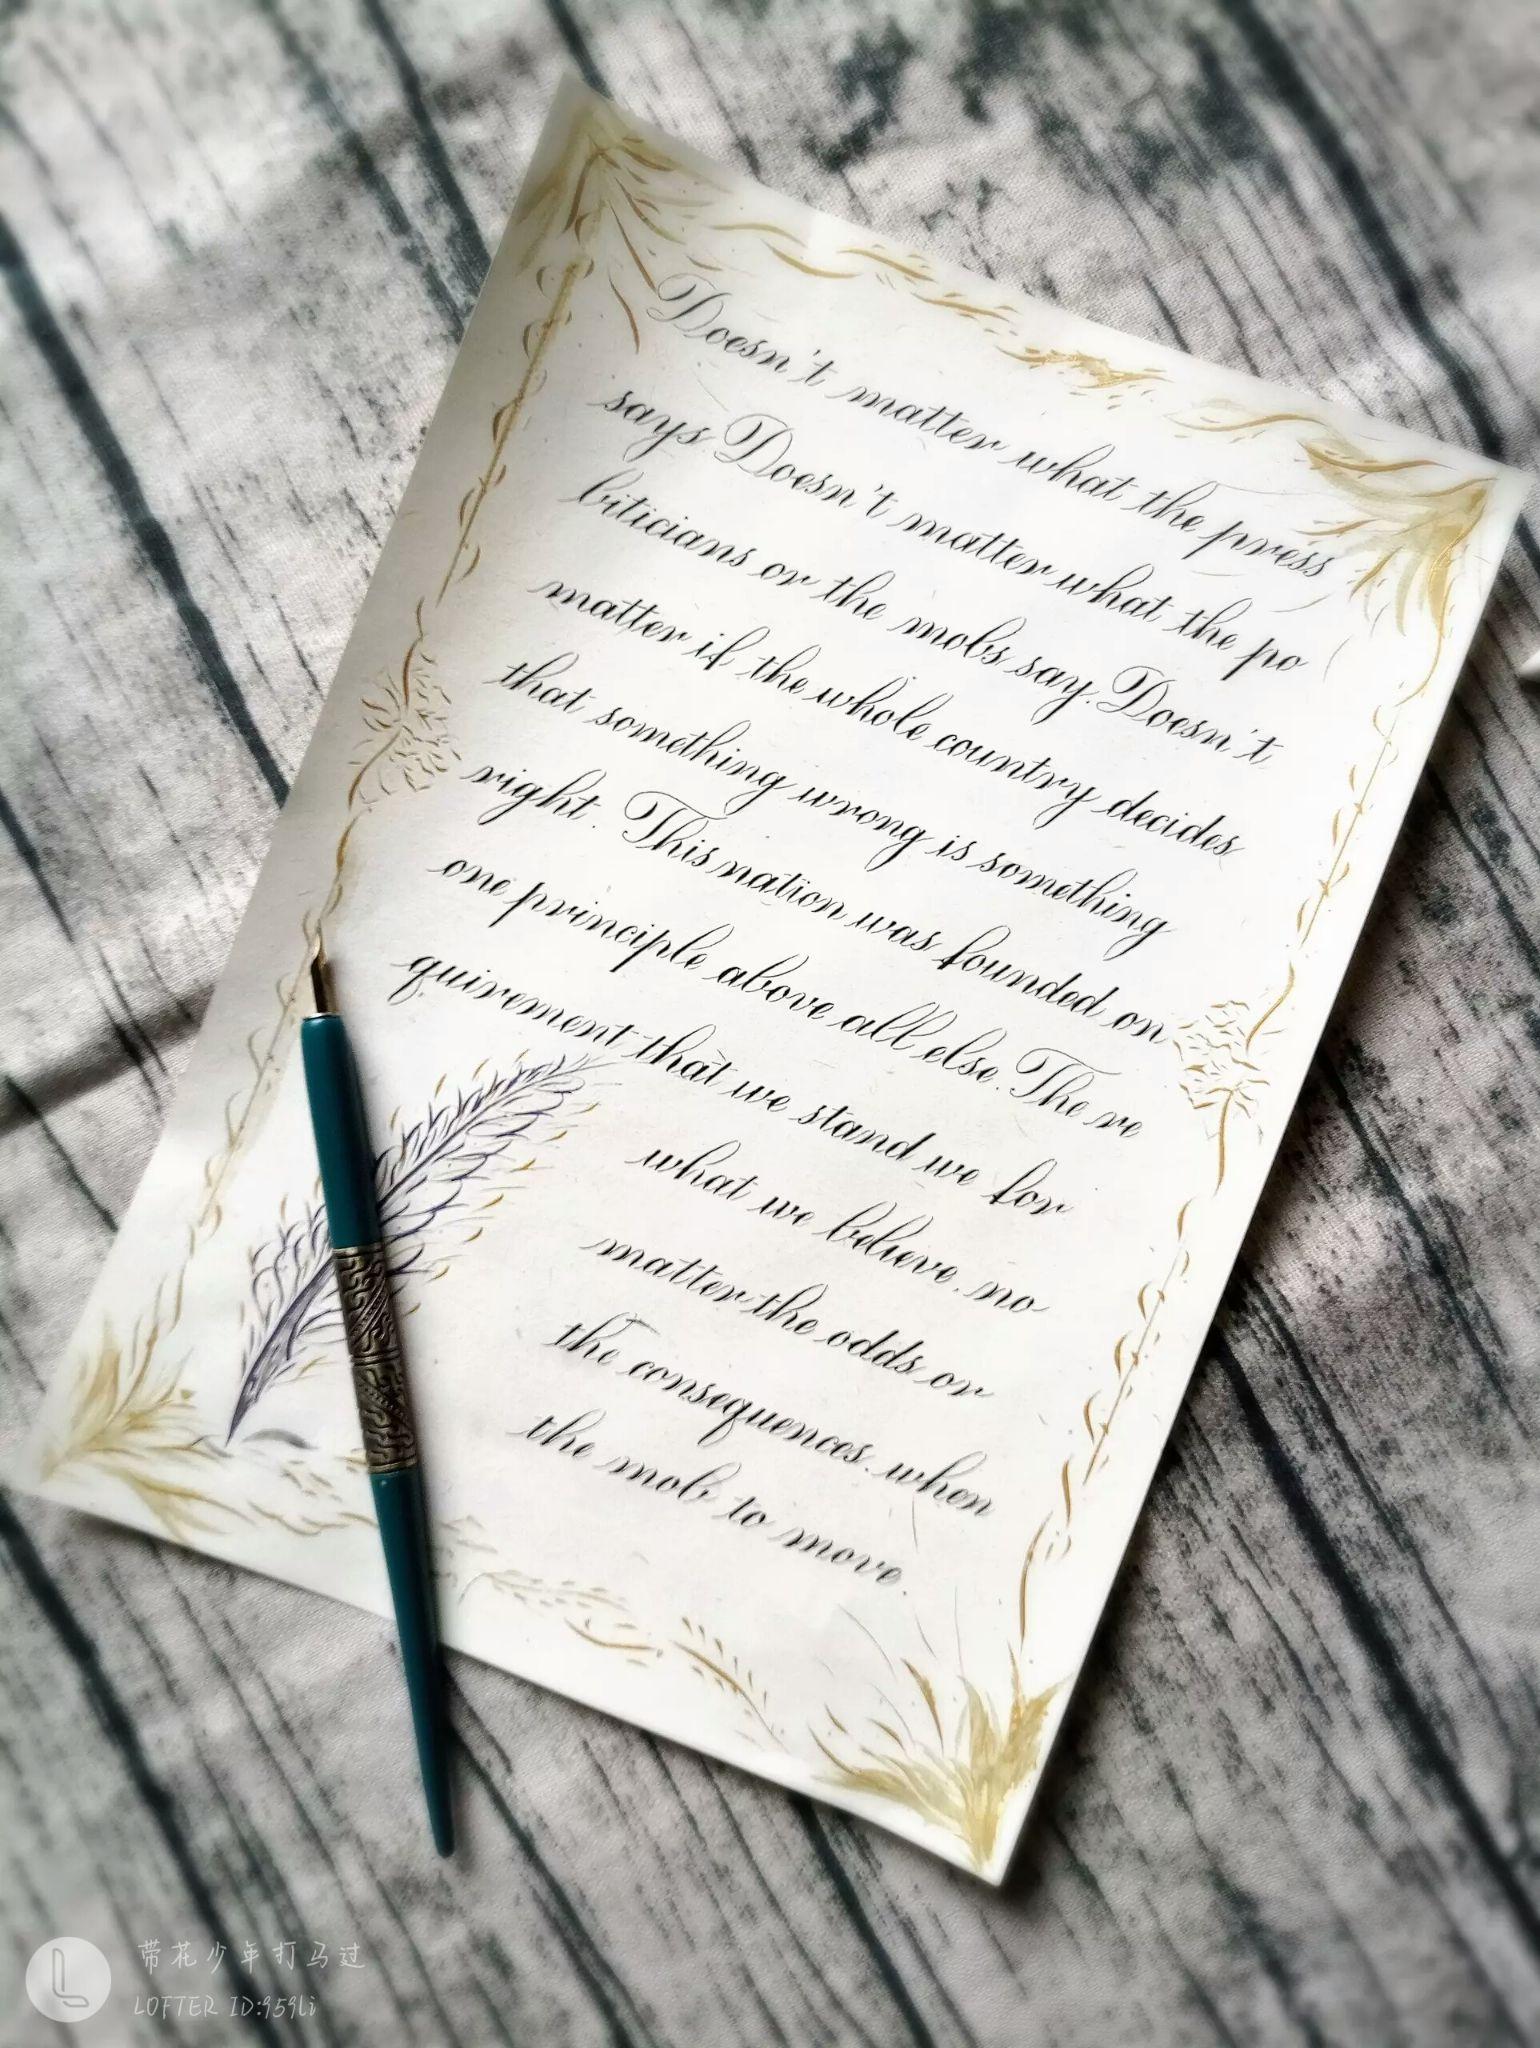 Doesn't matter what the press
says. Doesn't matter what the po
liticians or the mobs say. Doesn't
matter if the whole country decides
that something wrong is something
right. This nation was founded on
one principle above all else. The re
quirement that we stand we for
what we believe, no
matter the odds or
the consequences. when
the mob to move.
带花少年打马过
LOFTER ID:959li